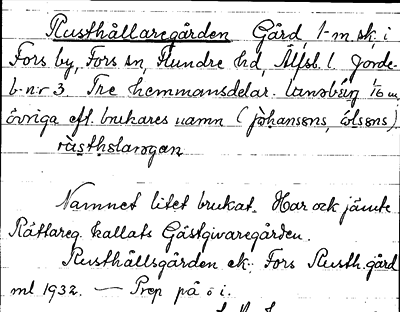 Rusthållaregården Gård, 1 m.sk, i
Fors by, Fors sn, Flundre hd, Älfsb. l. Jorde-
b.n:r 3. Tre hemmansdelar. 1/6 m,
övriga eft. brukares namn (johansøns, ølsøns)
Namnet litet brukat. Har ock jämte
Rättareg. kallats Gästgivaregården.
Rusthållsgården ek. Fors Rusth.gård
ml 1932. — Prep på o i.